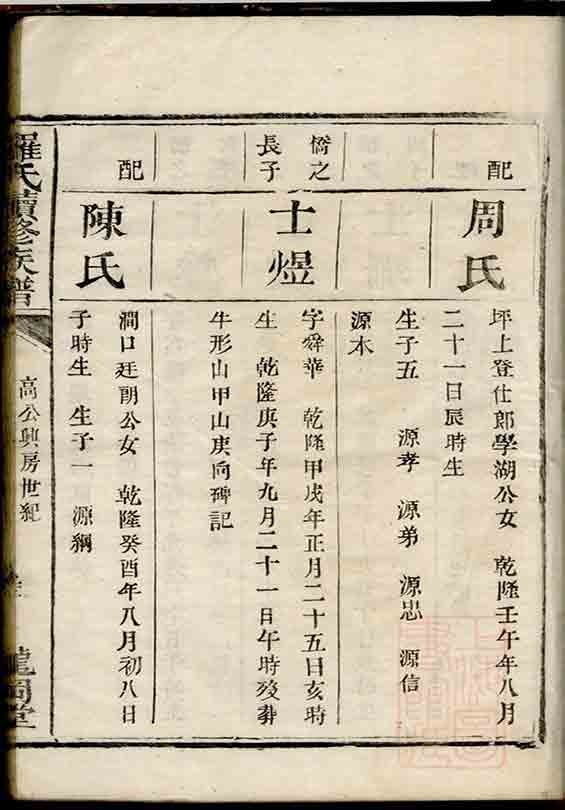 配
周氏
坪上登仕郎學湖公女　乾隆壬午年八月
二十一日辰時生
生子五　源孝　源弟　源忠　源信
源木
僑之
長子
士煜
字舜華　乾隆甲戌年正月二十五日亥時
生　乾隆庚子年九月二十一日午時歿葬
牛形山甲山庚向碑記
配
陳氏
澗口廷朗公女　乾隆癸酉年八月初八日
子時生　生子一　源綱
羅氏續修族譜
高公興房世紀